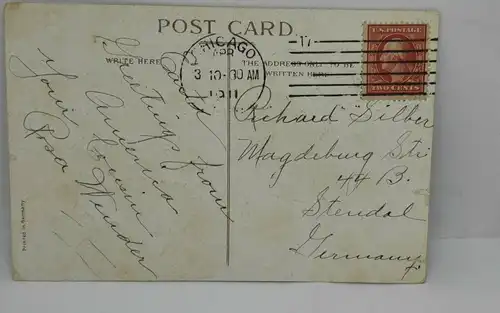 POST CARD.
WRITE HERE
THE ADDRESS ONLY TO BE
WRITTEN HERE
CHICAGO
APR
3 10-30 AM
1911
17
U.S. POSTAGE
TWO CENTS
Good
Greetings from
America
Your Cousin
Rosa Wender
Richard Silber
Magdeburg Str
44 B.
Stendal
Germany
Printed in Germany